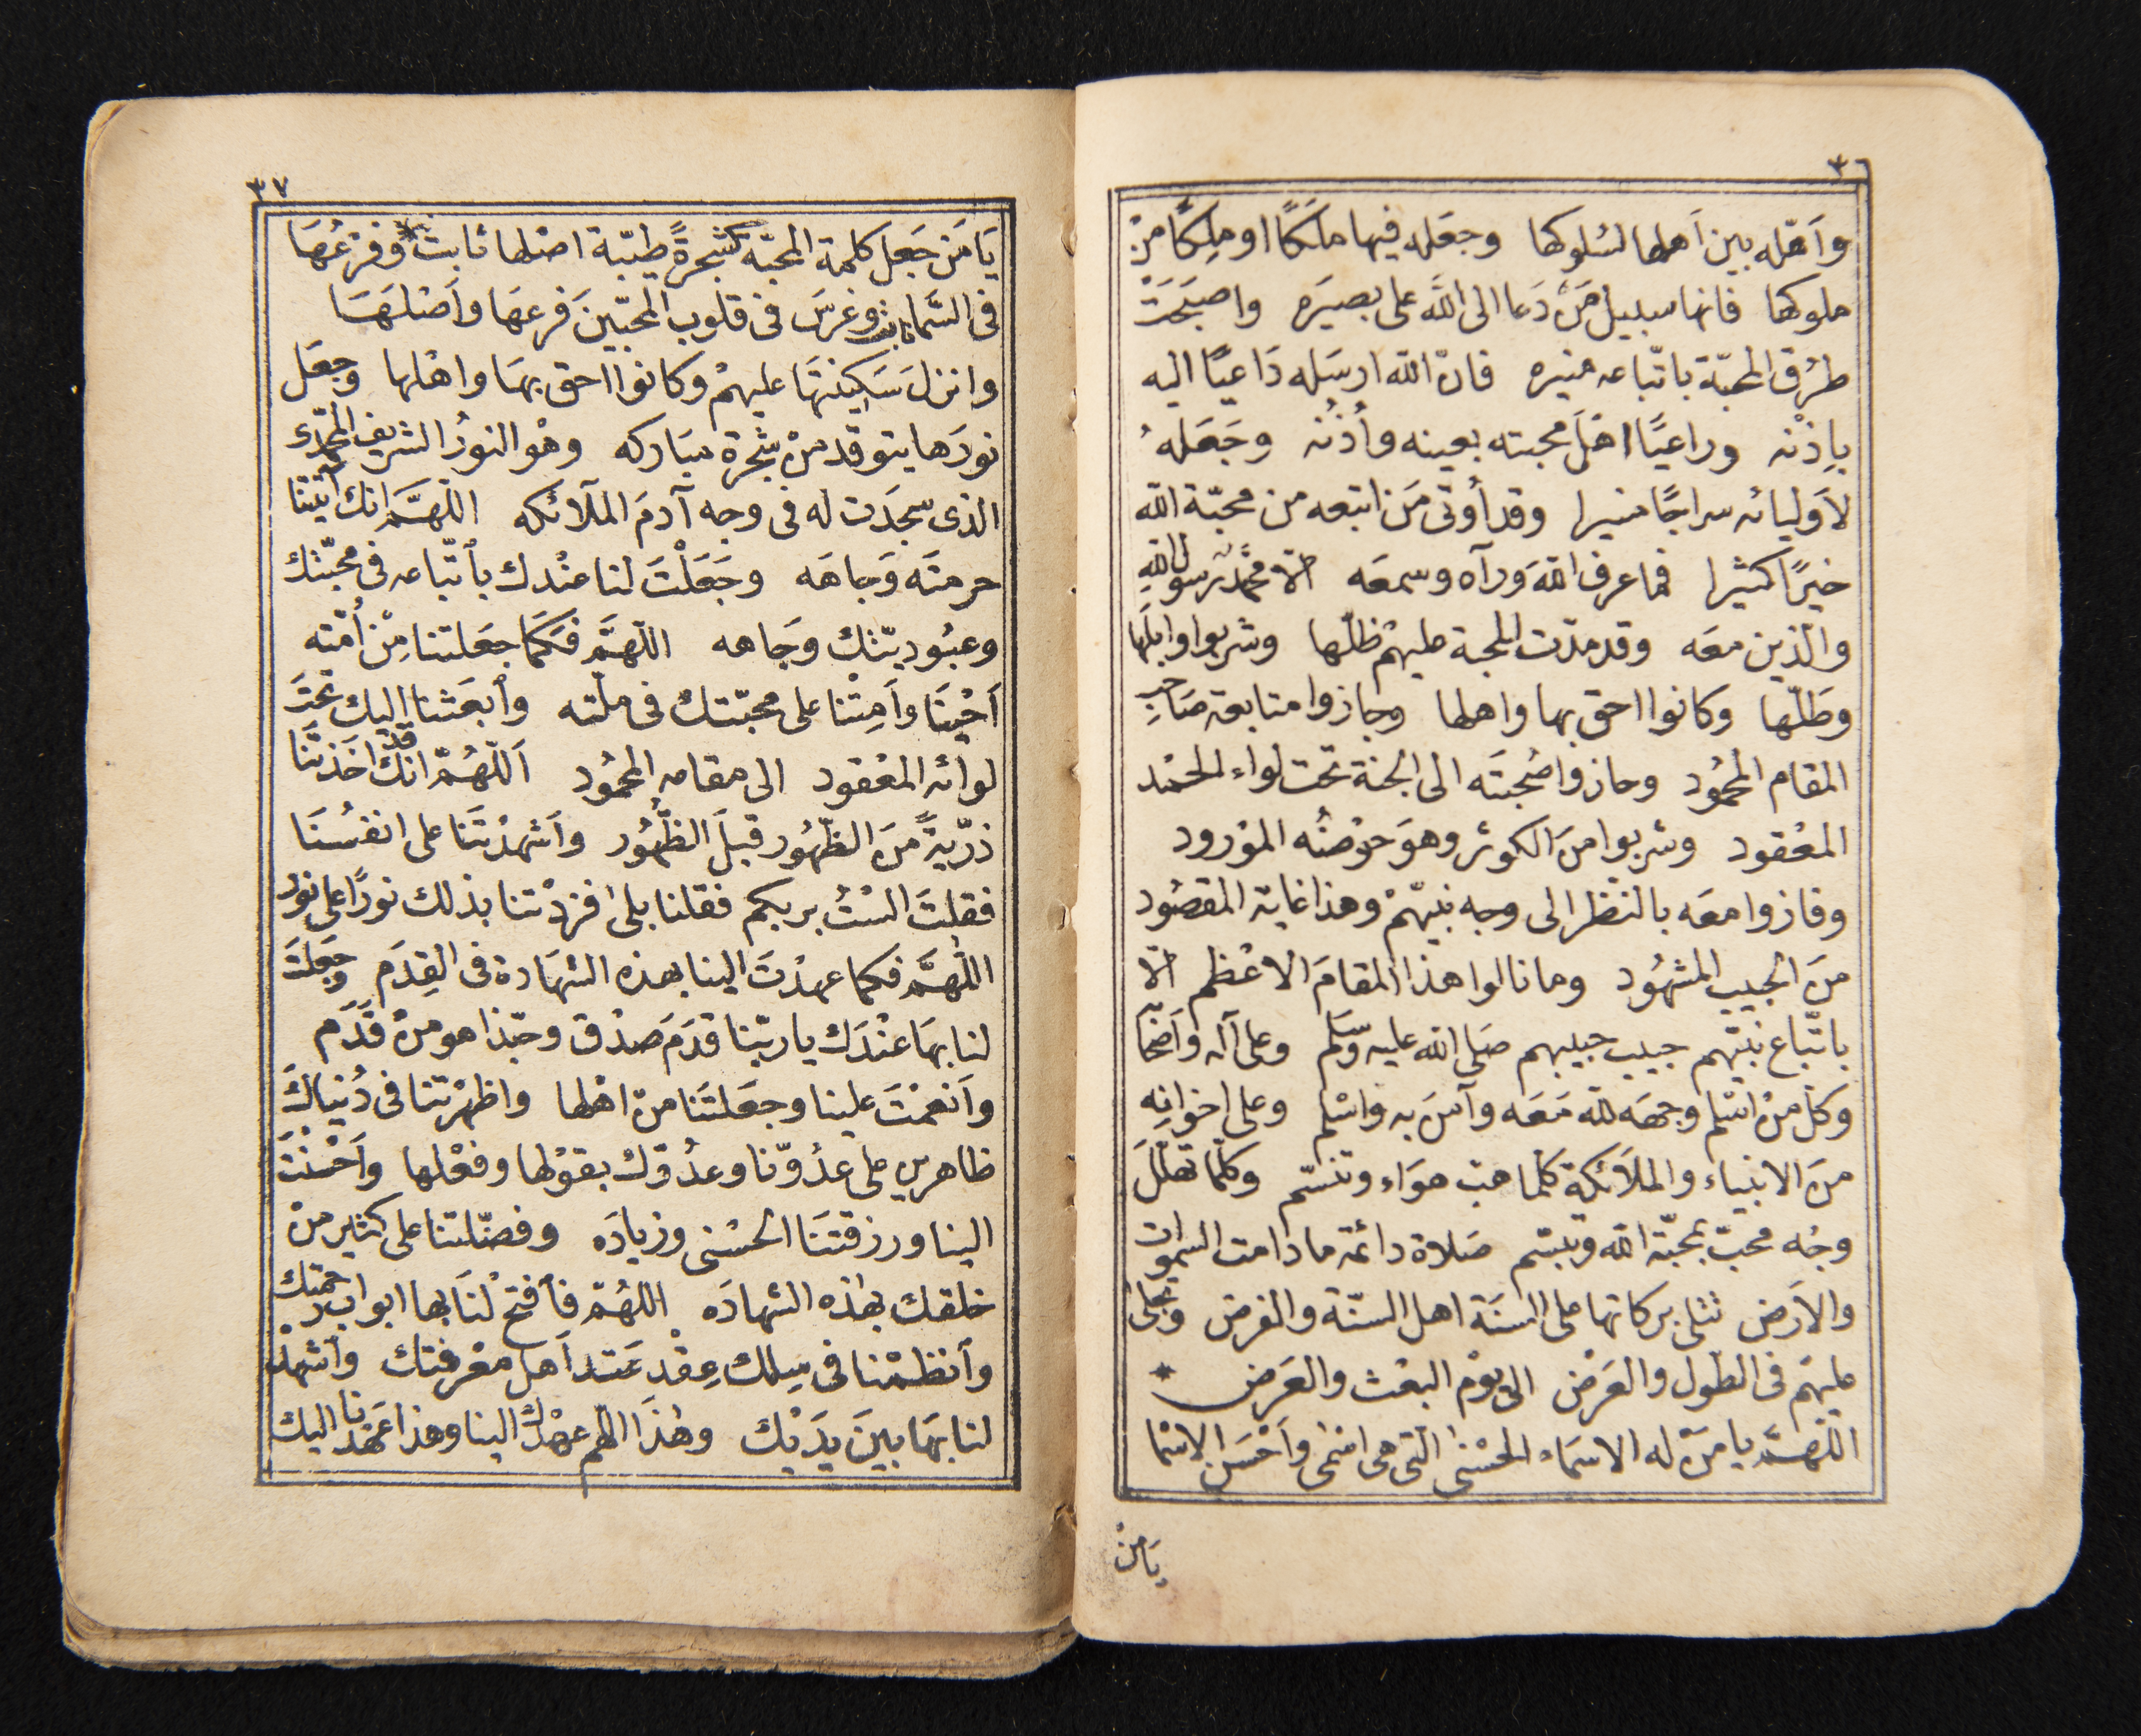 ٣٦
وأهّله بين أهلها لسُلوكها وجعَله فيها ملَكًا او مِلِكًا منْ
ملوكها فانها سبيل مَنْ دَعا الى اللّه على بصيَره واصبَحَتْ
طرُق المحبّة باتّباعه منيره فانّ اللّه ارسَله دَاعيًا اليه
بإذْنه وراعيًا اهْلَ محبته بعينه وأُذُنه وجَعَلهُ
لأوليائه سراجًا منيرا وقد أوتى مَن اتبعه من محبّة اللّه
خيرًا كثيرا فما عرف اللّهَ ورآه وسمعَه الّا محمّدٌ رسول اللّه
والّذين معَه وقد مدّت المحبة عليهمْ ظلّها وشربوا وابلَها
وطَلّها وكانوا احق بها واهلها وجازوا متابعة صَاحبِ
المقام المحمُود وحازوا صُحبتَه الى الجنة تحت لواء الحمْد
المعْقود وشربوا منَ الكوثر وهوَ حوْضُه الموْرود
وفازوا معَه بالنظر الى وجه نبيّهمْ وهذا غاية المقصُود
منَ الحبيب المشهُود وما نالوا هذا المقامَ الاعْظم الّا
باتّباع نبيّهم حبيب حبيبهم صَلى اللّه عليه وسَلم وعلى آله وأصْحابه
وكلّ منْ اسْلم وجهَه للّه مَعَه وآمنَ به واسْلم وعلى اخوانِه
منَ الانبياء والملاَئكة كلّما هبّ هوَاء وتنسّم وكلّما تهلّلَ
وجْه محبّ بمحبّة اللّه وتبسّم صَلاة دائمة ما دامت السموات
والأرَض تتلى بركاتها على السنَة اهل السنّة والفرض وتجلى
عليهَم فى الطّول والعَرْض الى يوْم البعْث والعَرَض *
اللّهمَّ يا منْ له الاسمَاء الحسْنى التى هى اسْمٰى وأحْسَن الاسْما
يَا منْ
٣٧
يَا مَن جَعلَ كلمة المحبّة كشجرةً طيّبة اصْلها ثابتٌ وفرْعُهَا
فى السَّماء ثابت وغرسَ فى قلوب المحبّينَ فرعهَا وأصْلهَا
وانزلَ سَكِينتهَا عليهمْ وكانوا احق بهَا واهْلها وجعَل
نورَها يتوقد منْ شجرة مبَاركه وهْو النورُ الشريف المحمّدى
الذى سجدَت له فى وجه آدمَ الملآئكه اللّهمَّ انك أثبتنا
حرمتَه وَجاهَه وجَعَلْتَ لنا عنْدك بأتّباعه فى محبّتك
وعبُوديّتك وجَاهه اللّهمَّ فكَمَا جعَلتنا مِنْ أُمّته
أحْينَا وأمِتْنا على محبّتك فى ملّته وأبعَثنا اليك تحتَ
لوائه المعْقود الى مقامه المحمُود اَللّهُمّ انّك قد اخَذتَنَا
ذرّيةً منَ الظّهُور قبلَ الظُّهُور وأشهدْتَنا على انفسُنَا
فقلتَ الستُ بربكم فقلنا بلى فزدْتنا بذلك نورًا على نور
اللّهمَّ فكما عهدْتَ الينا بهذه الشهَادة فى القِدَم وجَعلتَ
لنا بهَا عنْدَك يا ربّنا قدَمَ صدْق وحبّذا هو منْ قَدَم
وأنعمْتَ علينا وجعَلتَنا منْ اهْلها واظهرْتنا فى دُنياكَ
ظاهرين على عدُوّنا وعدُوّك بقوْلها وفعْلها وأحْسنْتَ
الينا ورزقتنَا الحسْنى وزيادَه وفضّلتنا على كثير منْ
خلقك بهٰذه الشهادَه اللّهُمّ فأفتحْ لنَا بها ابواب رحمتك
وأنظمْنا فى سِلك عِقْد عَقد أهل معْرفتك وأشهدْ
لنا بهَا بينَ يدَيْك وهٰذَا اللّهم عهْدك الينا وهذا عَهْدنا اليك